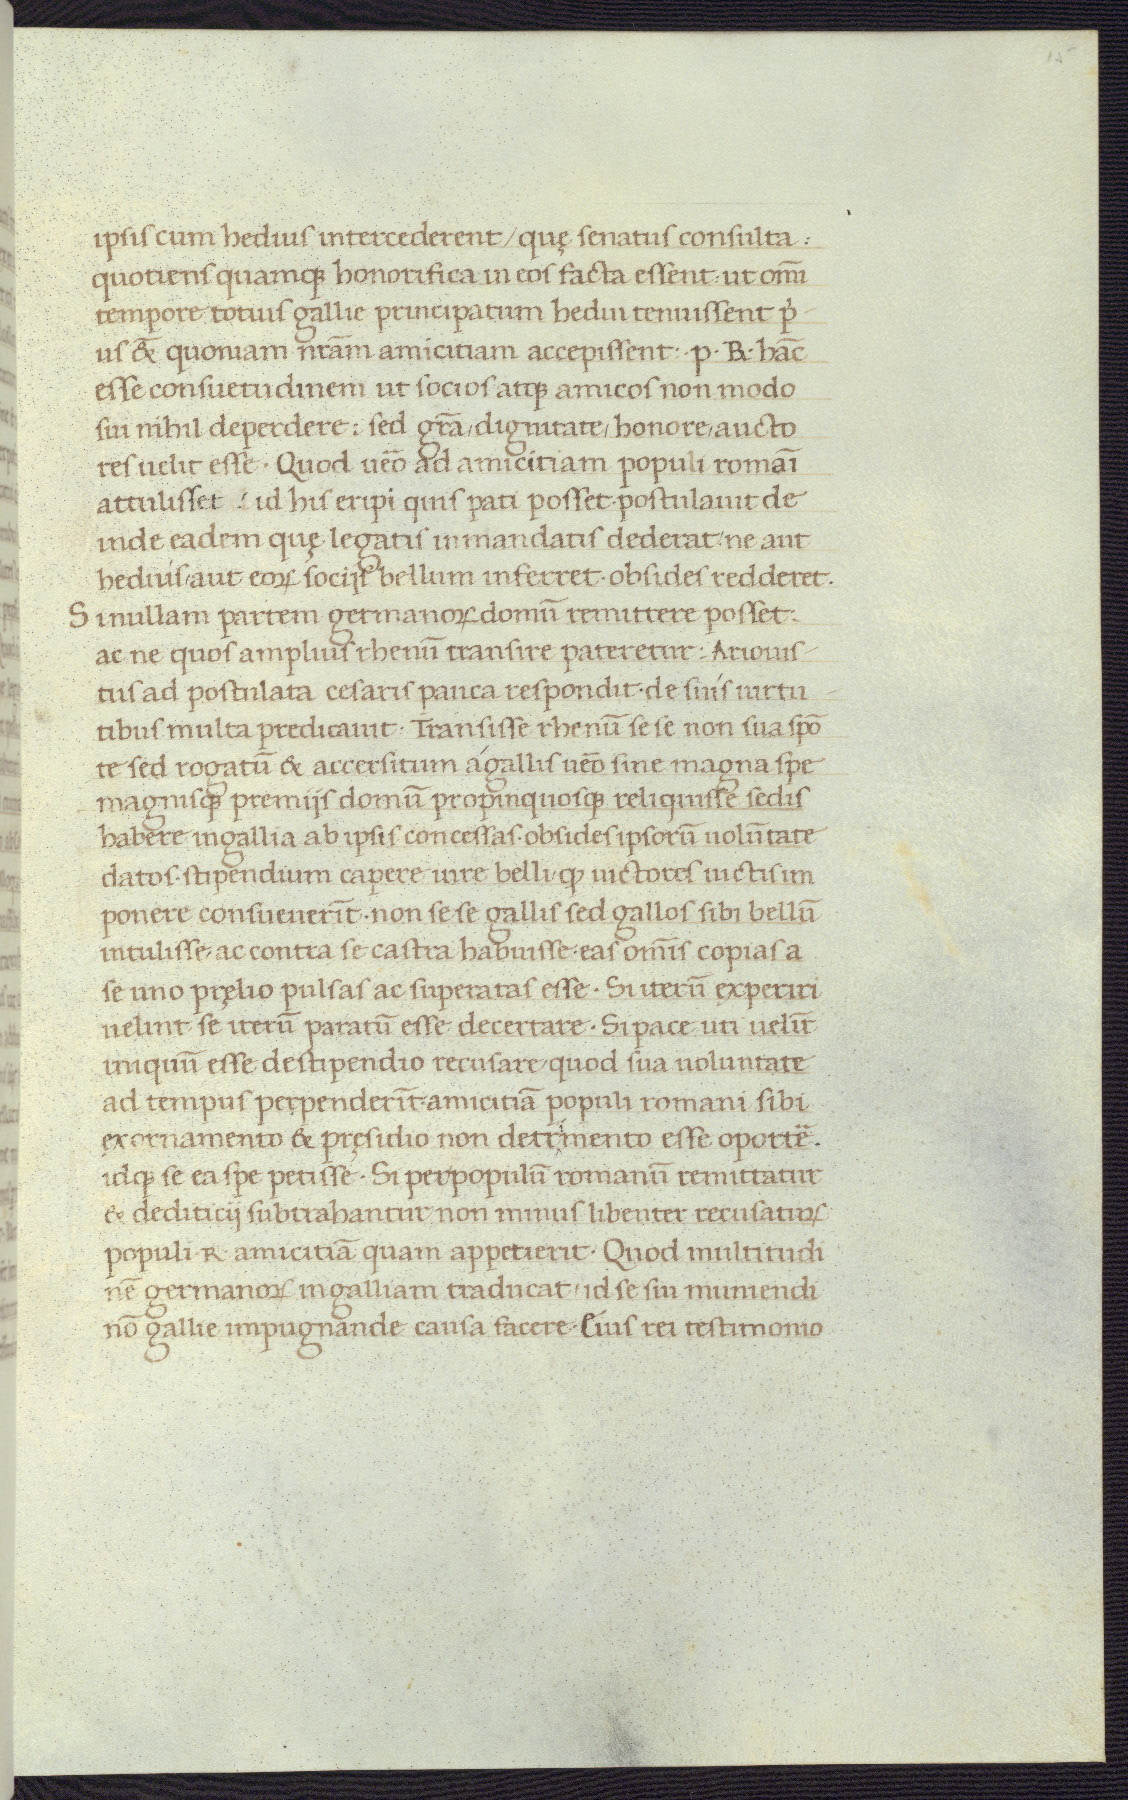 15
ipsis cum hediis intercederent / quę senatus consulta :
quotiens quamq; honorifica in eos facta essent · ut om̄i
tempore totius gallie principatum hedui tenuissent p̄
us & quoniam nr̄am amicitiam accepissent · p · R · hāc
esse consuetudinem ut socios atq; amicos non modo
sui nihil deperdere : sed gr̄a / dignitate / honore / aucto
res uelit esse · Quod uēo ad amicitiam populi romāi
attulisset : id his eripi quis pati posset · postulauit de
inde eadem quę legatis in mandatis dederat / ne aut
heduis / aut eoꝝ socijs bellum inferret · obsides redderet .
Si nullam partem germanoꝝ domū remittere posset ·
ac ne quos amplius rhenū transire pateretur : Ariouis
tus ad postulata cesaris pauca respondit · de suis uirtu
tibus multa predicauit · Transisse rhenū se se non sua spō
te sed rogatū & accersitum á gallis uēo sine magna spe
magnisq; premijs domū propinquosq; reliquisse sedis
habere in gallia ab ipsis concessas · obsides ipsorū uolūtate
datos · stipendium capere iure belli · q; uictores uictis im
ponere consueuerīt · non se se gallis sed gallos sibi bellū
intulisse / ac contra se castra habuisse · eas om̄is copias a
se uno pręlio pulsas ac superatas esse · Si iterū experiri
uelint se iterū paratū esse decertare · Si pace uti uelīt
iniquū esse de stipendio recusare / quod sua uoluntate
ad tempus perpenderīt · amicitiā populi romani sibi
ex ornamento & pręsidio non detrimento esse oportē .
idq; se ea spe petisse · Si per populū romanū remittatur
& dediticij subtrahantur non minus libenter recusatuꝝ
populi R amicitiā quam appetierit · Quod multitudi
nē germanoꝝ in galliam traducat / id se sui muniendi
nō gallie impugnande causa facere · Eius rei testimonio